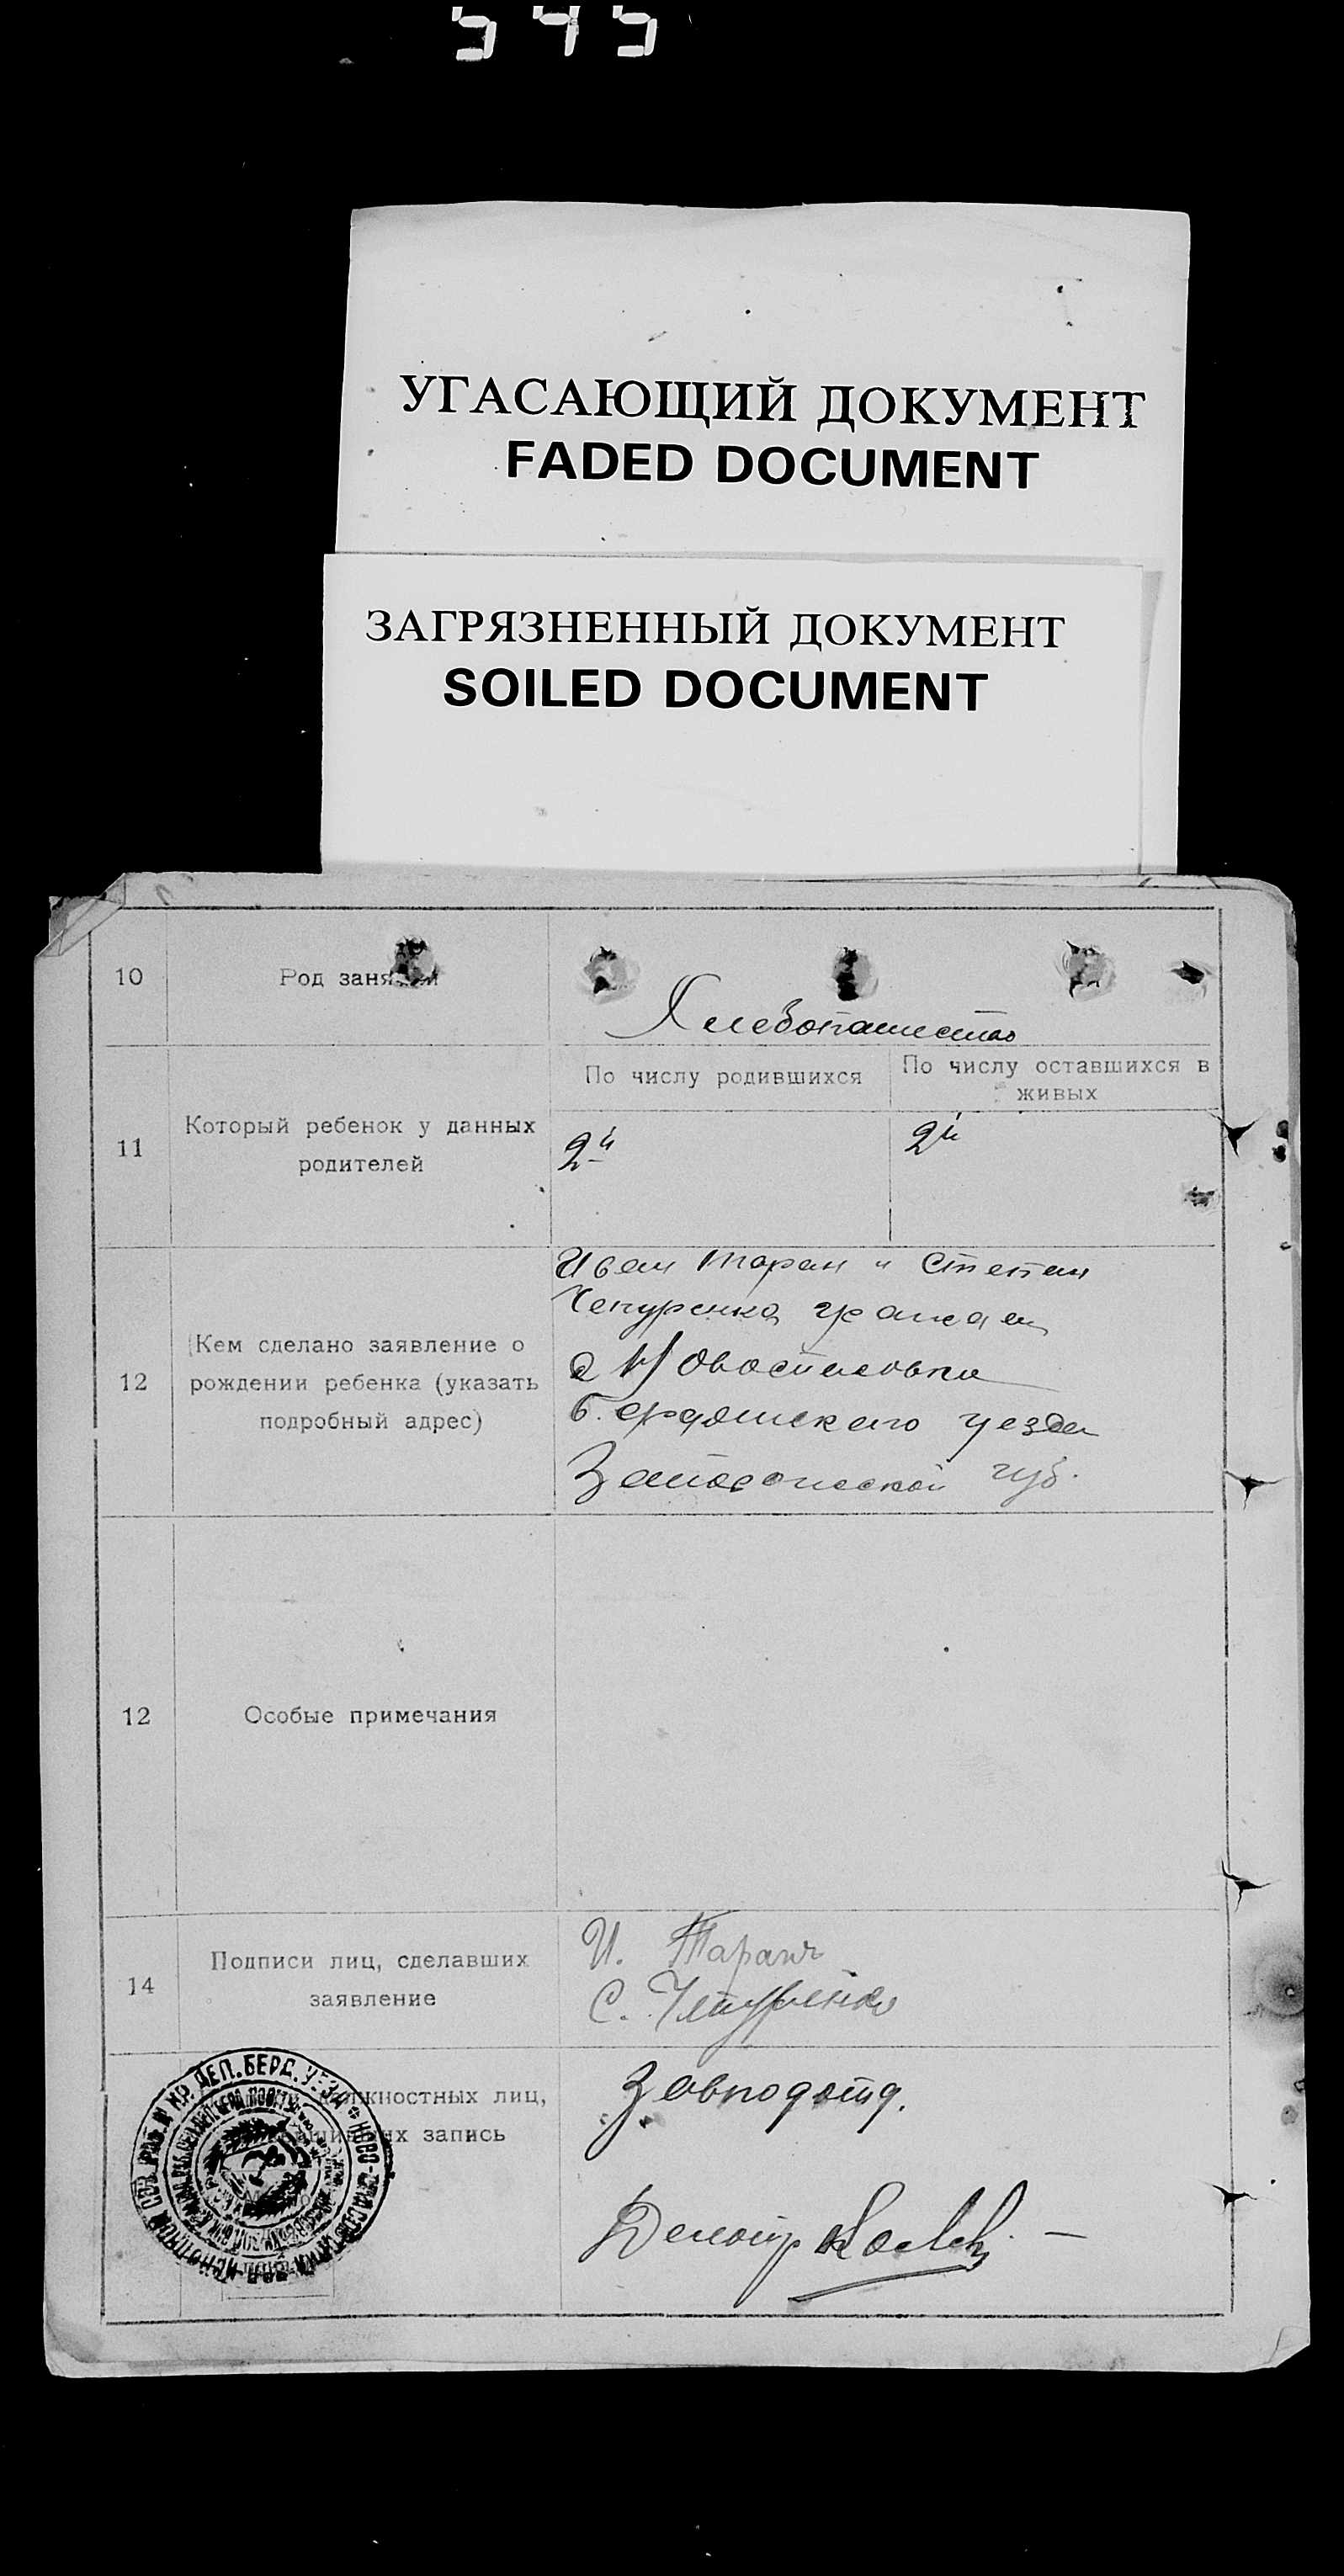 545
УГАСАЮЩИЙ ДОКУМЕНТ
FADED DOCUMENT
ЗАГРЯЗНЕННЫЙ ДОКУМЕНТ
SOILED DOCUMENT
10
Род занятий
Хлебопашество
11
Который ребенок у данных
родителей
По числу родившихся
По числу оставшихся в
живых
2й
2й
12
Кем сделано заявление о
рождении ребенка (указать
подробный адрес)
Иван Таран и Степан
Чепуренко граждан
с Новоспасовки
Бердянского уезда
Запорожской губ.
12
Особые примечания
14
Подписи лиц, сделавших
заявление
И. Таран
С. Чепуренко
должностных лиц,
запись
Завподотд.
Делопр